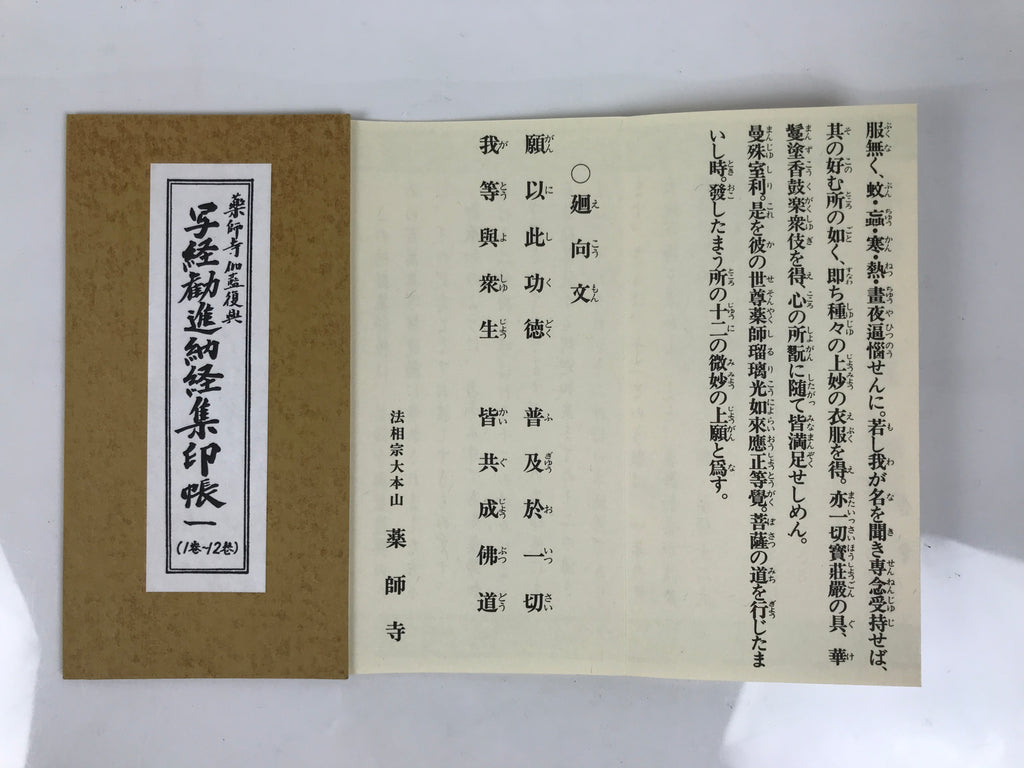 服無く、蚊・蝱・寒・熱・晝夜逼惱せんに。若し我が名を聞き専念受持せば、
其の好む所の如く、即ち種々の上妙の衣服を得。亦一切寳莊嚴の具、華
鬘塗香鼓楽衆伎を得、心の所翫に随て皆満足せしめん。
曼殊室利。是を彼の世尊薬師瑠璃光如來應正等覺。菩薩の道を行じたま
いし時。發したまう所の十二の微妙の上願と爲す。
○廻向文
願以此功徳 普及於一切
我等與衆生 皆共成佛道
法相宗大本山 薬師寺
薬師寺伽藍復興
写経勧進納経集印帳一
(1巻~12巻)